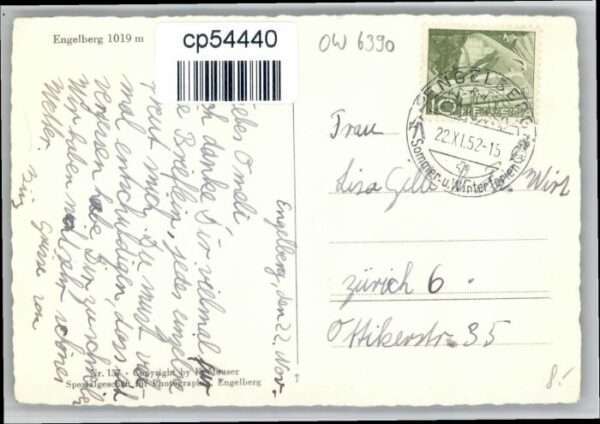 Engelberg 1019 m
cp54440
OW 6390
ENGELBERG
22.XI.52-15
Sommer- u. Winterferien
10
HELVETIA
Frau
Lisa
Wirz
Zürich 6.
Ottikerstr. 35
8.-
Engelberg, den 22. Nov.
Liebes Omeli
Ich danke Dir vielmal für
die Brieflin, jedes einzelne
freut mich. Du must viel-
mal entschuldigen, dass ich
vergessen habe Dir zu schreiben
Wir haben schönes
Wetter. Grüsse von
Nr. 137 - Copyright by
Spezialgeschäft für Photographie, Engelberg